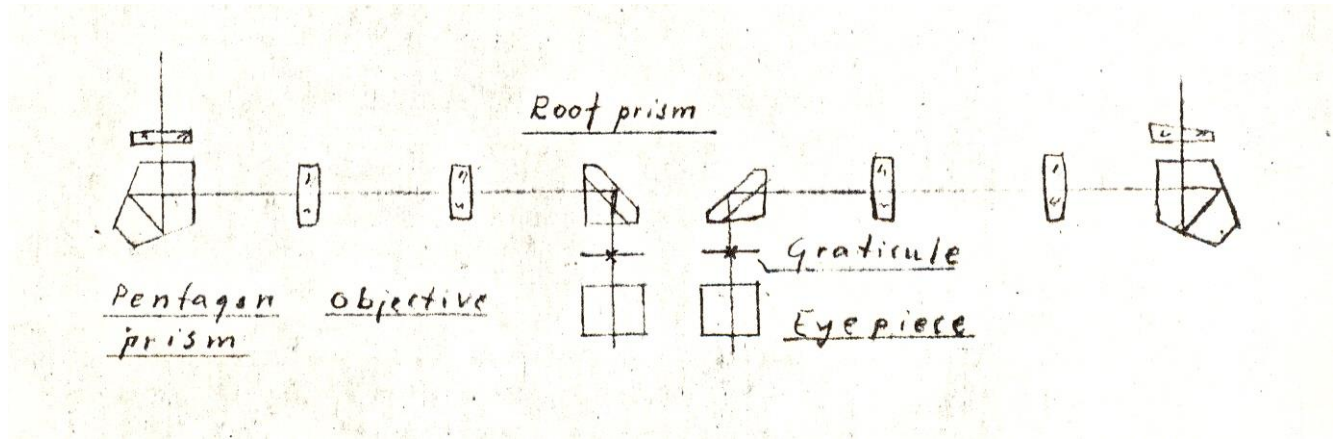 Roof prism
Graticule
Pentagon
prism
Objective
Eyepiece